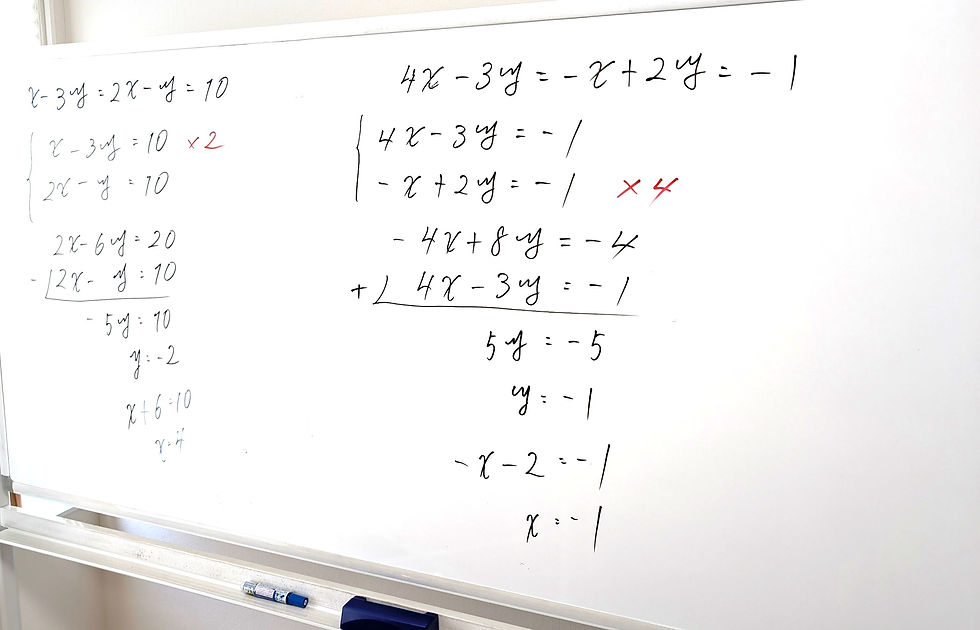 x-3y=2x-y=10
x-3y=10 ×2
2x-y=10
2x-6y=20
-) 2x-y=10
-5y=10
y=-2
x+6=10
x=4
4x-3y=-x+2y=-1
4x-3y=-1
-x+2y=-1 ×4
-4x+8y=-4
+) 4x-3y=-1
5y=-5
y=-1
-x-2=-1
x=-1